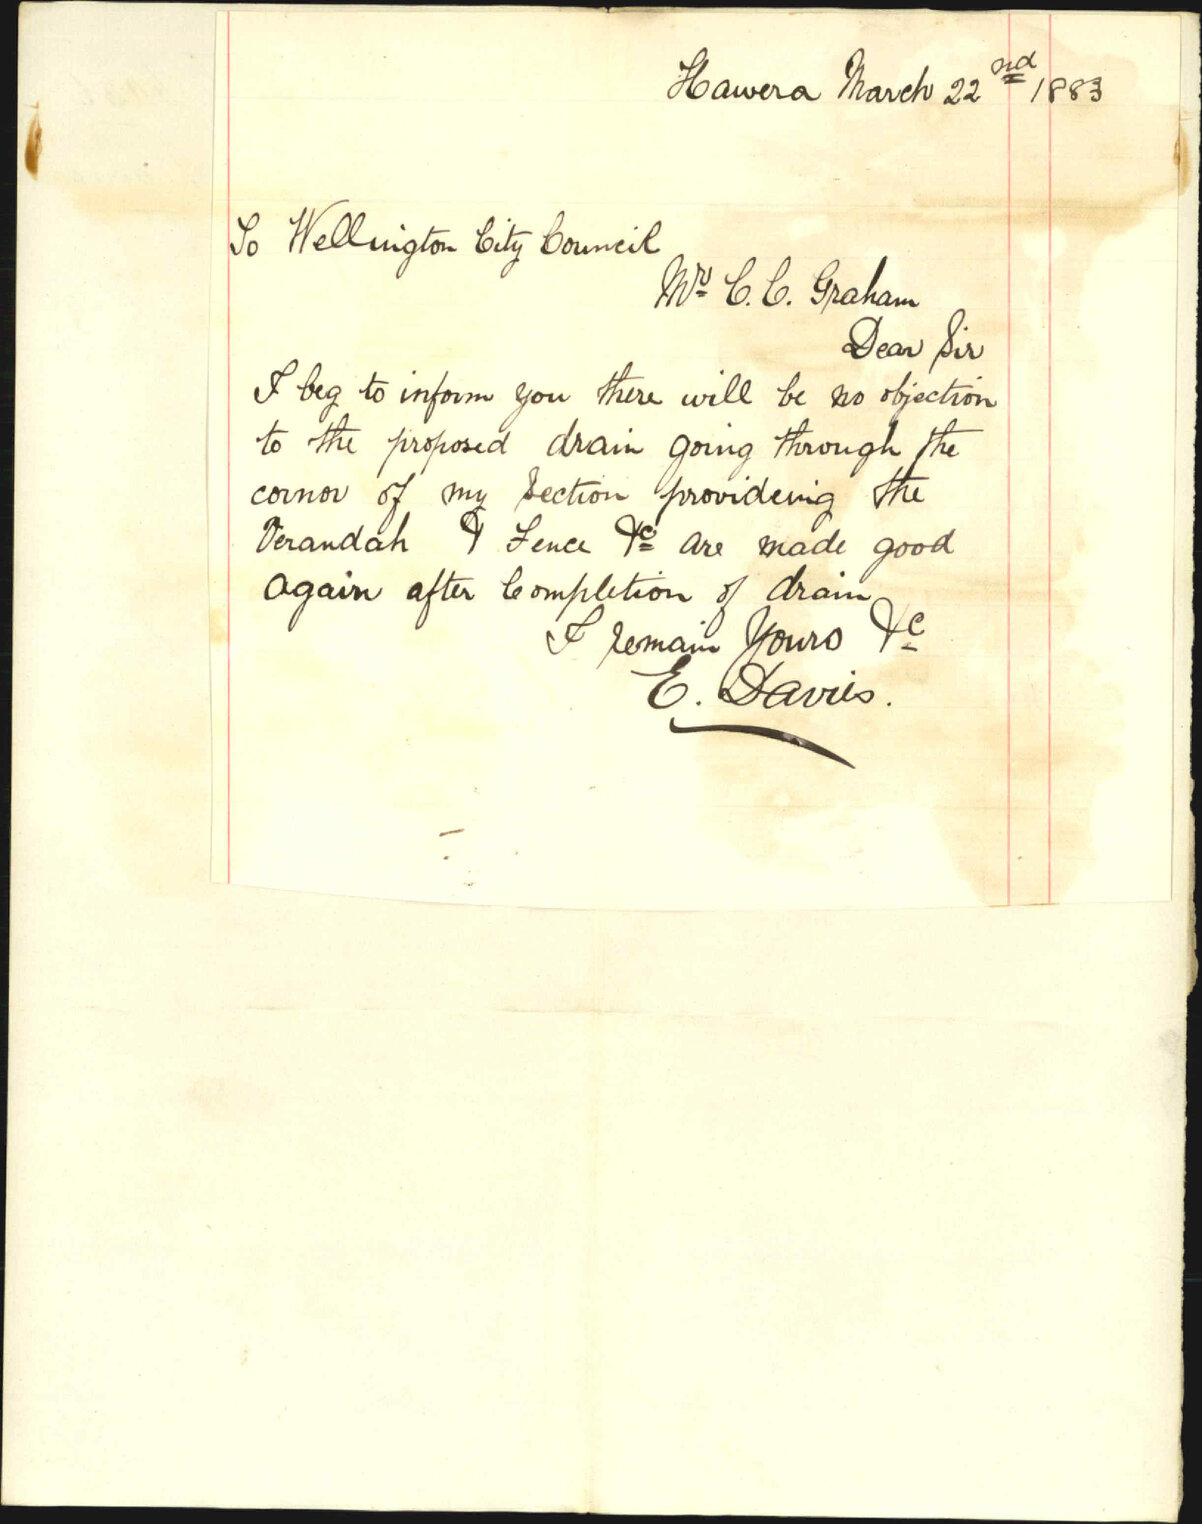 Hawera March 22nd 1883
To Wellington City Council
Mr. C. C. Graham
Dear Sir
I beg to inform you there will be no objection
to the proposed drain going through the
cornor of my Section provideing the
Verandah & Fence &c are made good
again after Completion of drain
I remain Yours &c
E. Davies.